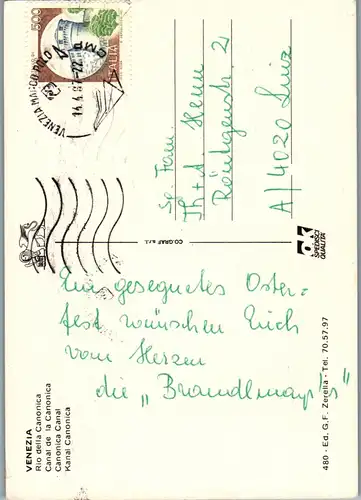 500
ITALIA
VENEZIA MARCO POLO
14.4.87-22
Sp. Fam.
Th+d Henn
Röntgenstr. 2
A/4020 Linz
CO.GRAF s.r.l.
SPEDISCI
QUALITÀ
Ein gesegnetes Oster=
fest wünschen Euch
vom Herzen
die „Brandlmayr
VENEZIA
Rio della Canonica
Canal de la Canonica
Canonica Canal
Kanal Canonica
480 - Ed. G.F. Zerella - Tel. 70.57.97